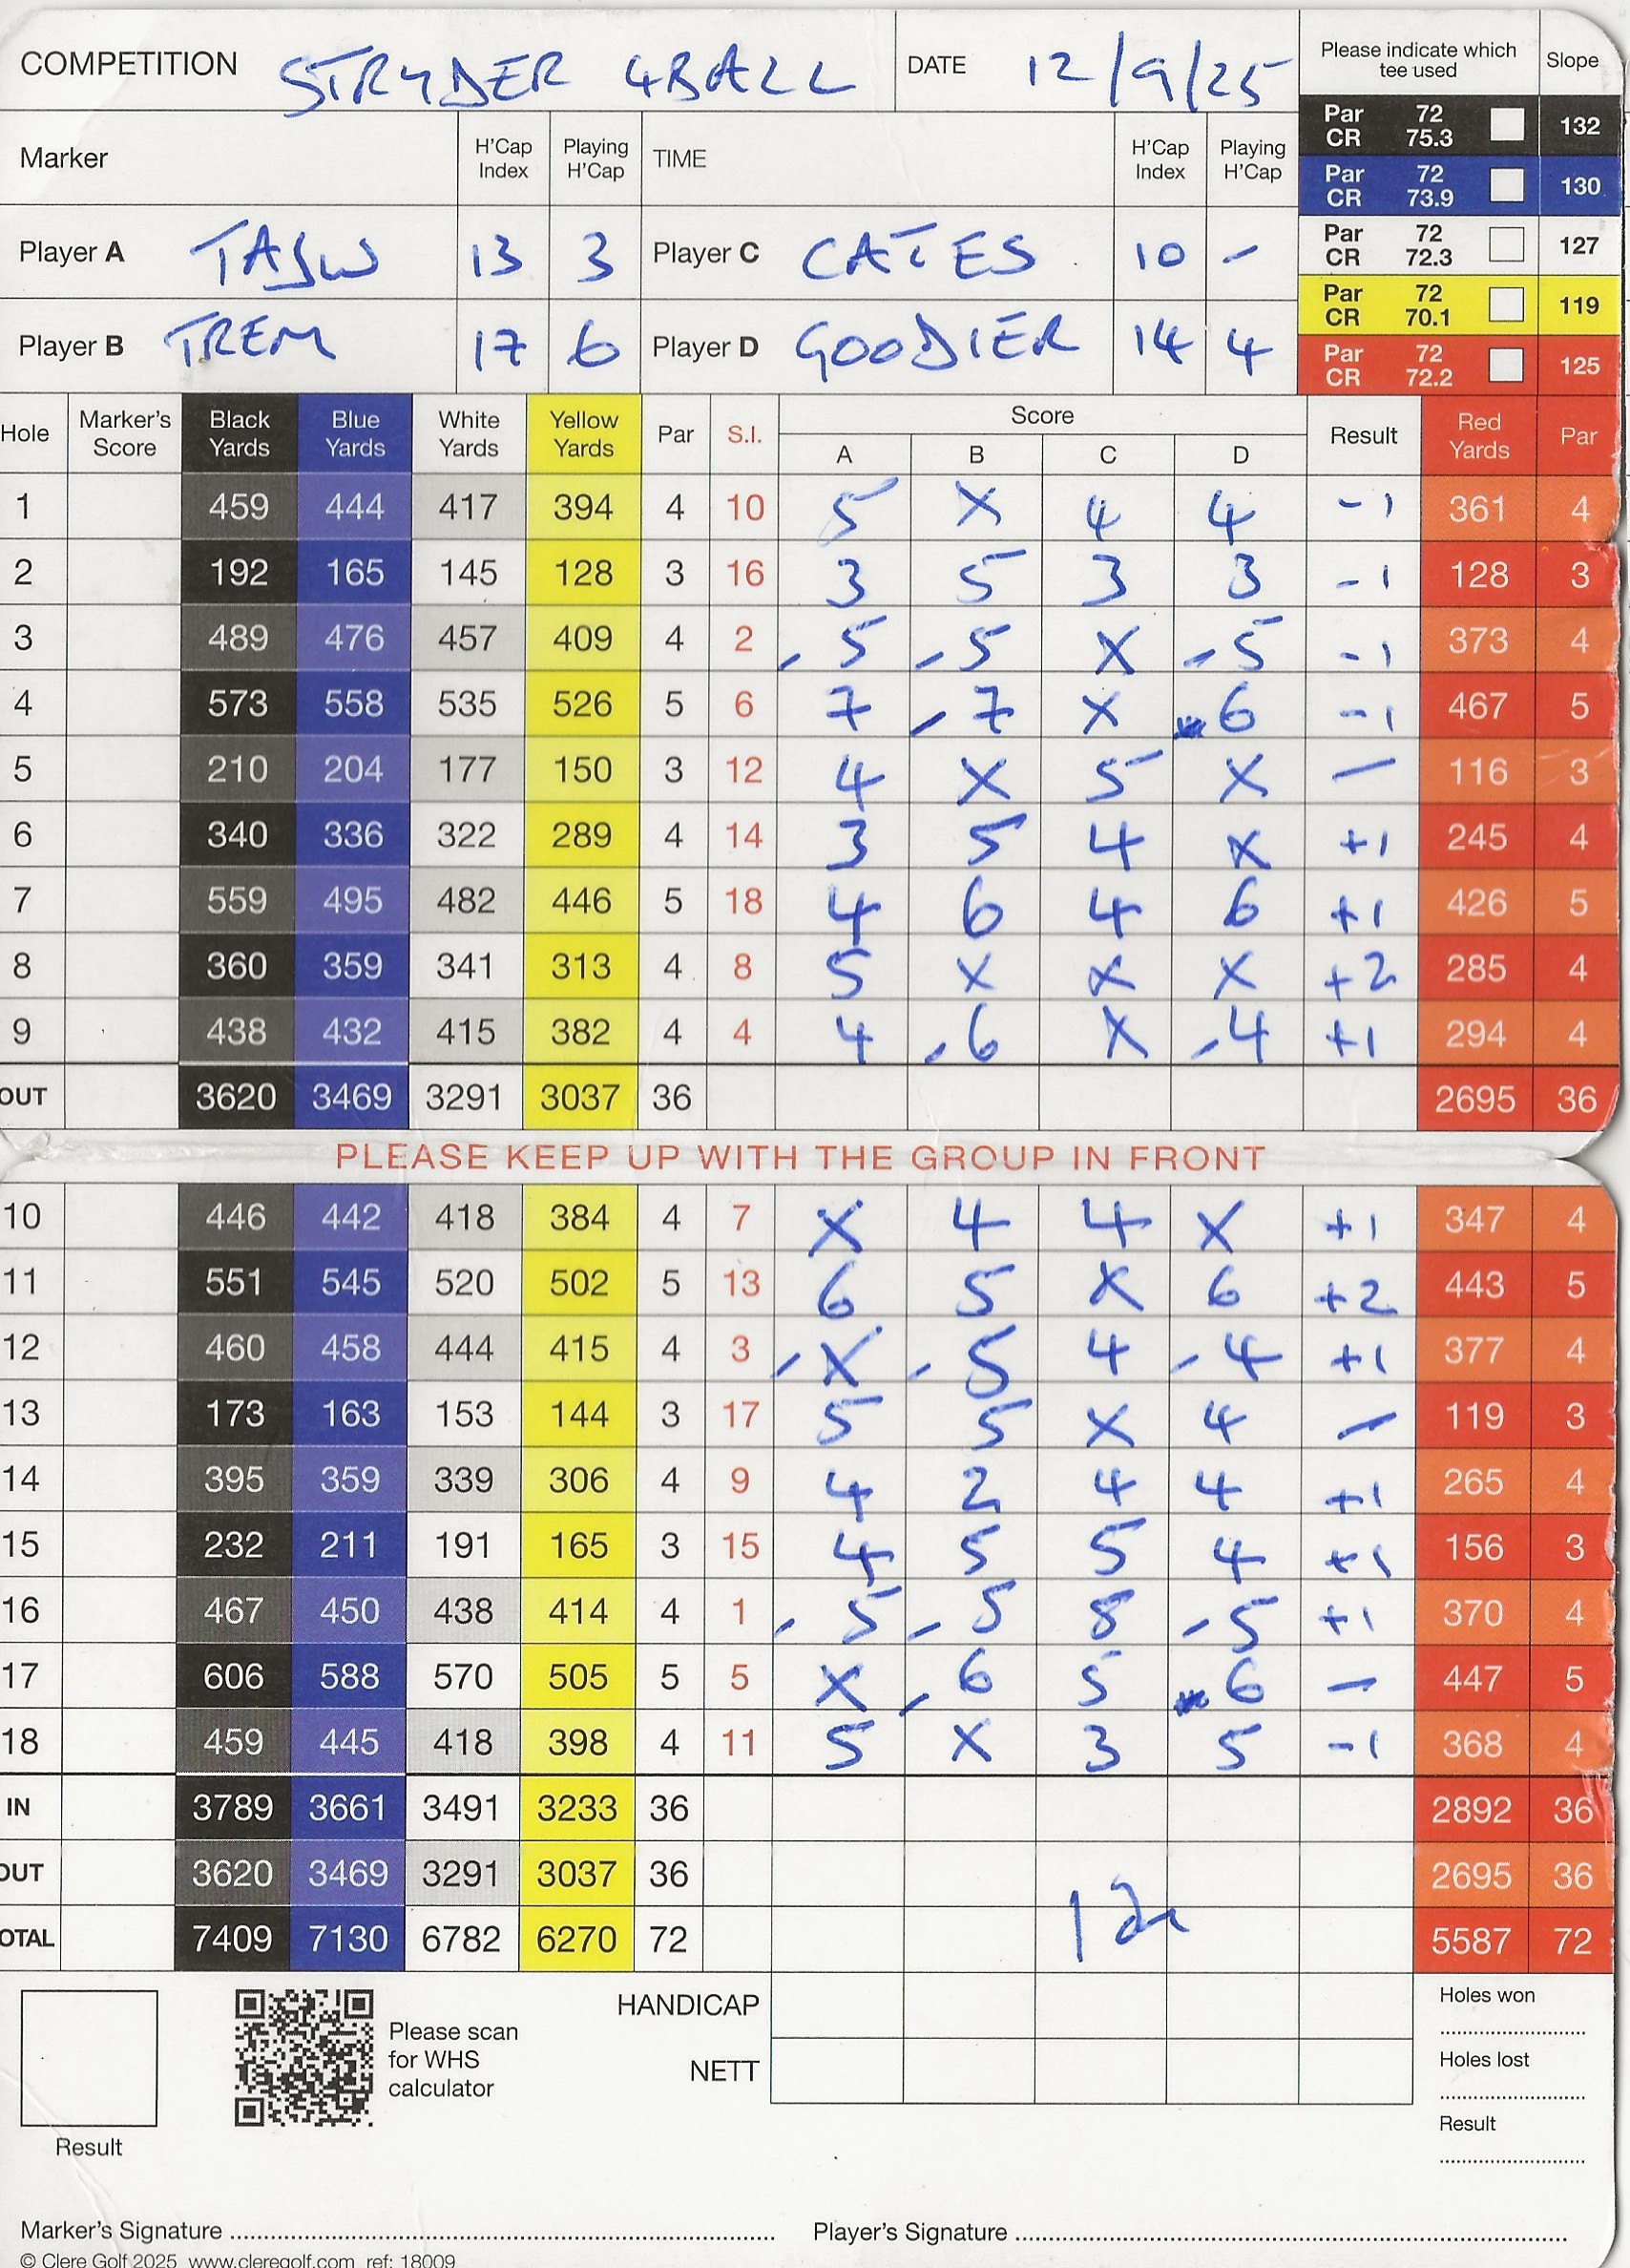 COMPETITION STRYDER 4BALL DATE 12/9/25 Please indicate which tee used Slope
Marker H'Cap Index Playing H'Cap TIME H'Cap Index Playing H'Cap Par 72 CR 75.3 132
Par 72 CR 73.9 130
Player A TAJW 13 3 Player C CATES 10 - Par 72 CR 72.3 127
Par 72 CR 70.1 119
Player B TREM 17 6 Player D GOODIER 14 4 Par 72 CR 72.2 125
Hole Marker's Score Black Yards Blue Yards White Yards Yellow Yards Par S.I. Score A B C D Result Red Yards Par
1 459 444 417 394 4 10 5 X 4 4 -1 361 4
2 192 165 145 128 3 16 3 5 3 3 -1 128 3
3 489 476 457 409 4 2 5 5 X 5 -1 373 4
4 573 558 535 526 5 6 7 7 X 6 -1 467 5
5 210 204 177 150 3 12 4 X 5 X - 116 3
6 340 336 322 289 4 14 3 5 4 X +1 245 4
7 559 495 482 446 5 18 4 6 4 6 +1 426 5
8 360 359 341 313 4 8 5 X X X +2 285 4
9 438 432 415 382 4 4 4 6 X 4 +1 294 4
OUT 3620 3469 3291 3037 36 2695 36
PLEASE KEEP UP WITH THE GROUP IN FRONT
10 446 442 418 384 4 7 X 4 4 X +1 347 4
11 551 545 520 502 5 13 6 5 X 6 +2 443 5
12 460 458 444 415 4 3 X 5 4 4 +1 377 4
13 173 163 153 144 3 17 5 5 X 4 - 119 3
14 395 359 339 306 4 9 4 2 4 4 +1 265 4
15 232 211 191 165 3 15 4 5 5 4 +1 156 3
16 467 450 438 414 4 1 5 5 8 5 +1 370 4
17 606 588 570 505 5 5 X 6 5 6 - 447 5
18 459 445 418 398 4 11 5 X 3 5 -1 368 4
IN 3789 3661 3491 3233 36 2892 36
OUT 3620 3469 3291 3037 36 2695 36
TOTAL 7409 7130 6782 6270 72 5587 72
HANDICAP
NETT
Please scan
for WHS
calculator
Result
Holes won
Holes lost
Result
Marker's Signature Player's Signature
© Clere Golf 2025 www.cleregolf.com ref: 18009